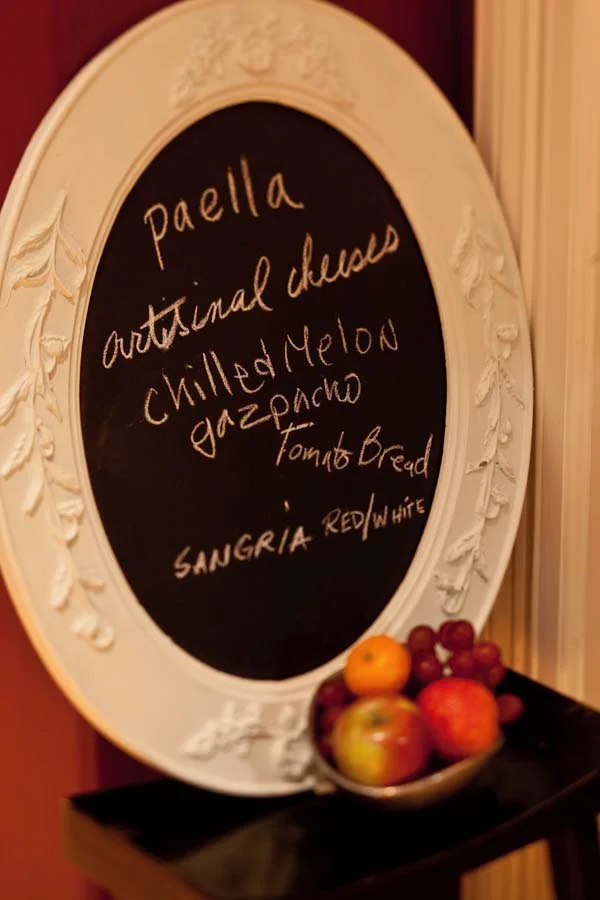 paella
artisinal cheeses
chilled Melon
gazpacho
Tomato Bread
SANGRIA RED/WHITE